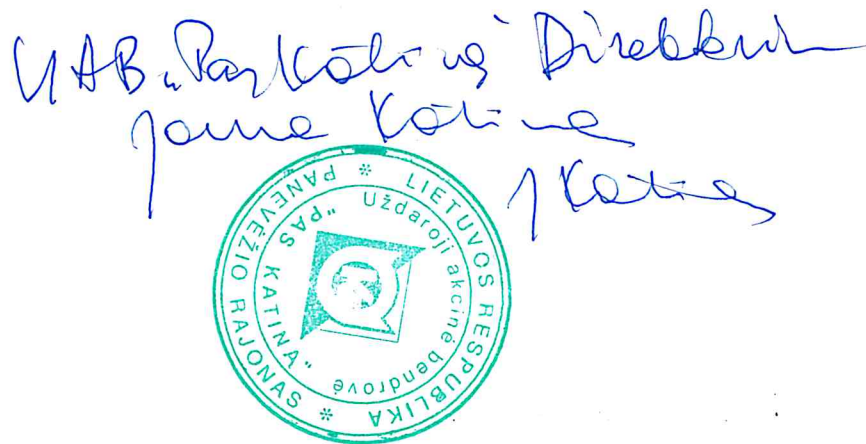 UAB „Pas Katiną" Direktorius
Jonas Katinas
JKatinas
LIETUVOS RESPUBLIKA * PANEVĖŽIO RAJONAS *
Uždaroji akcinė bendrovė "PAS KATINĄ"